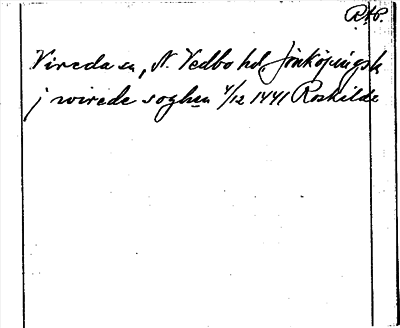 RAP.
Vireda sn, N. Vedbo hd, Jönköpings l
j wirede soghen 4/12 1441 Roskilde